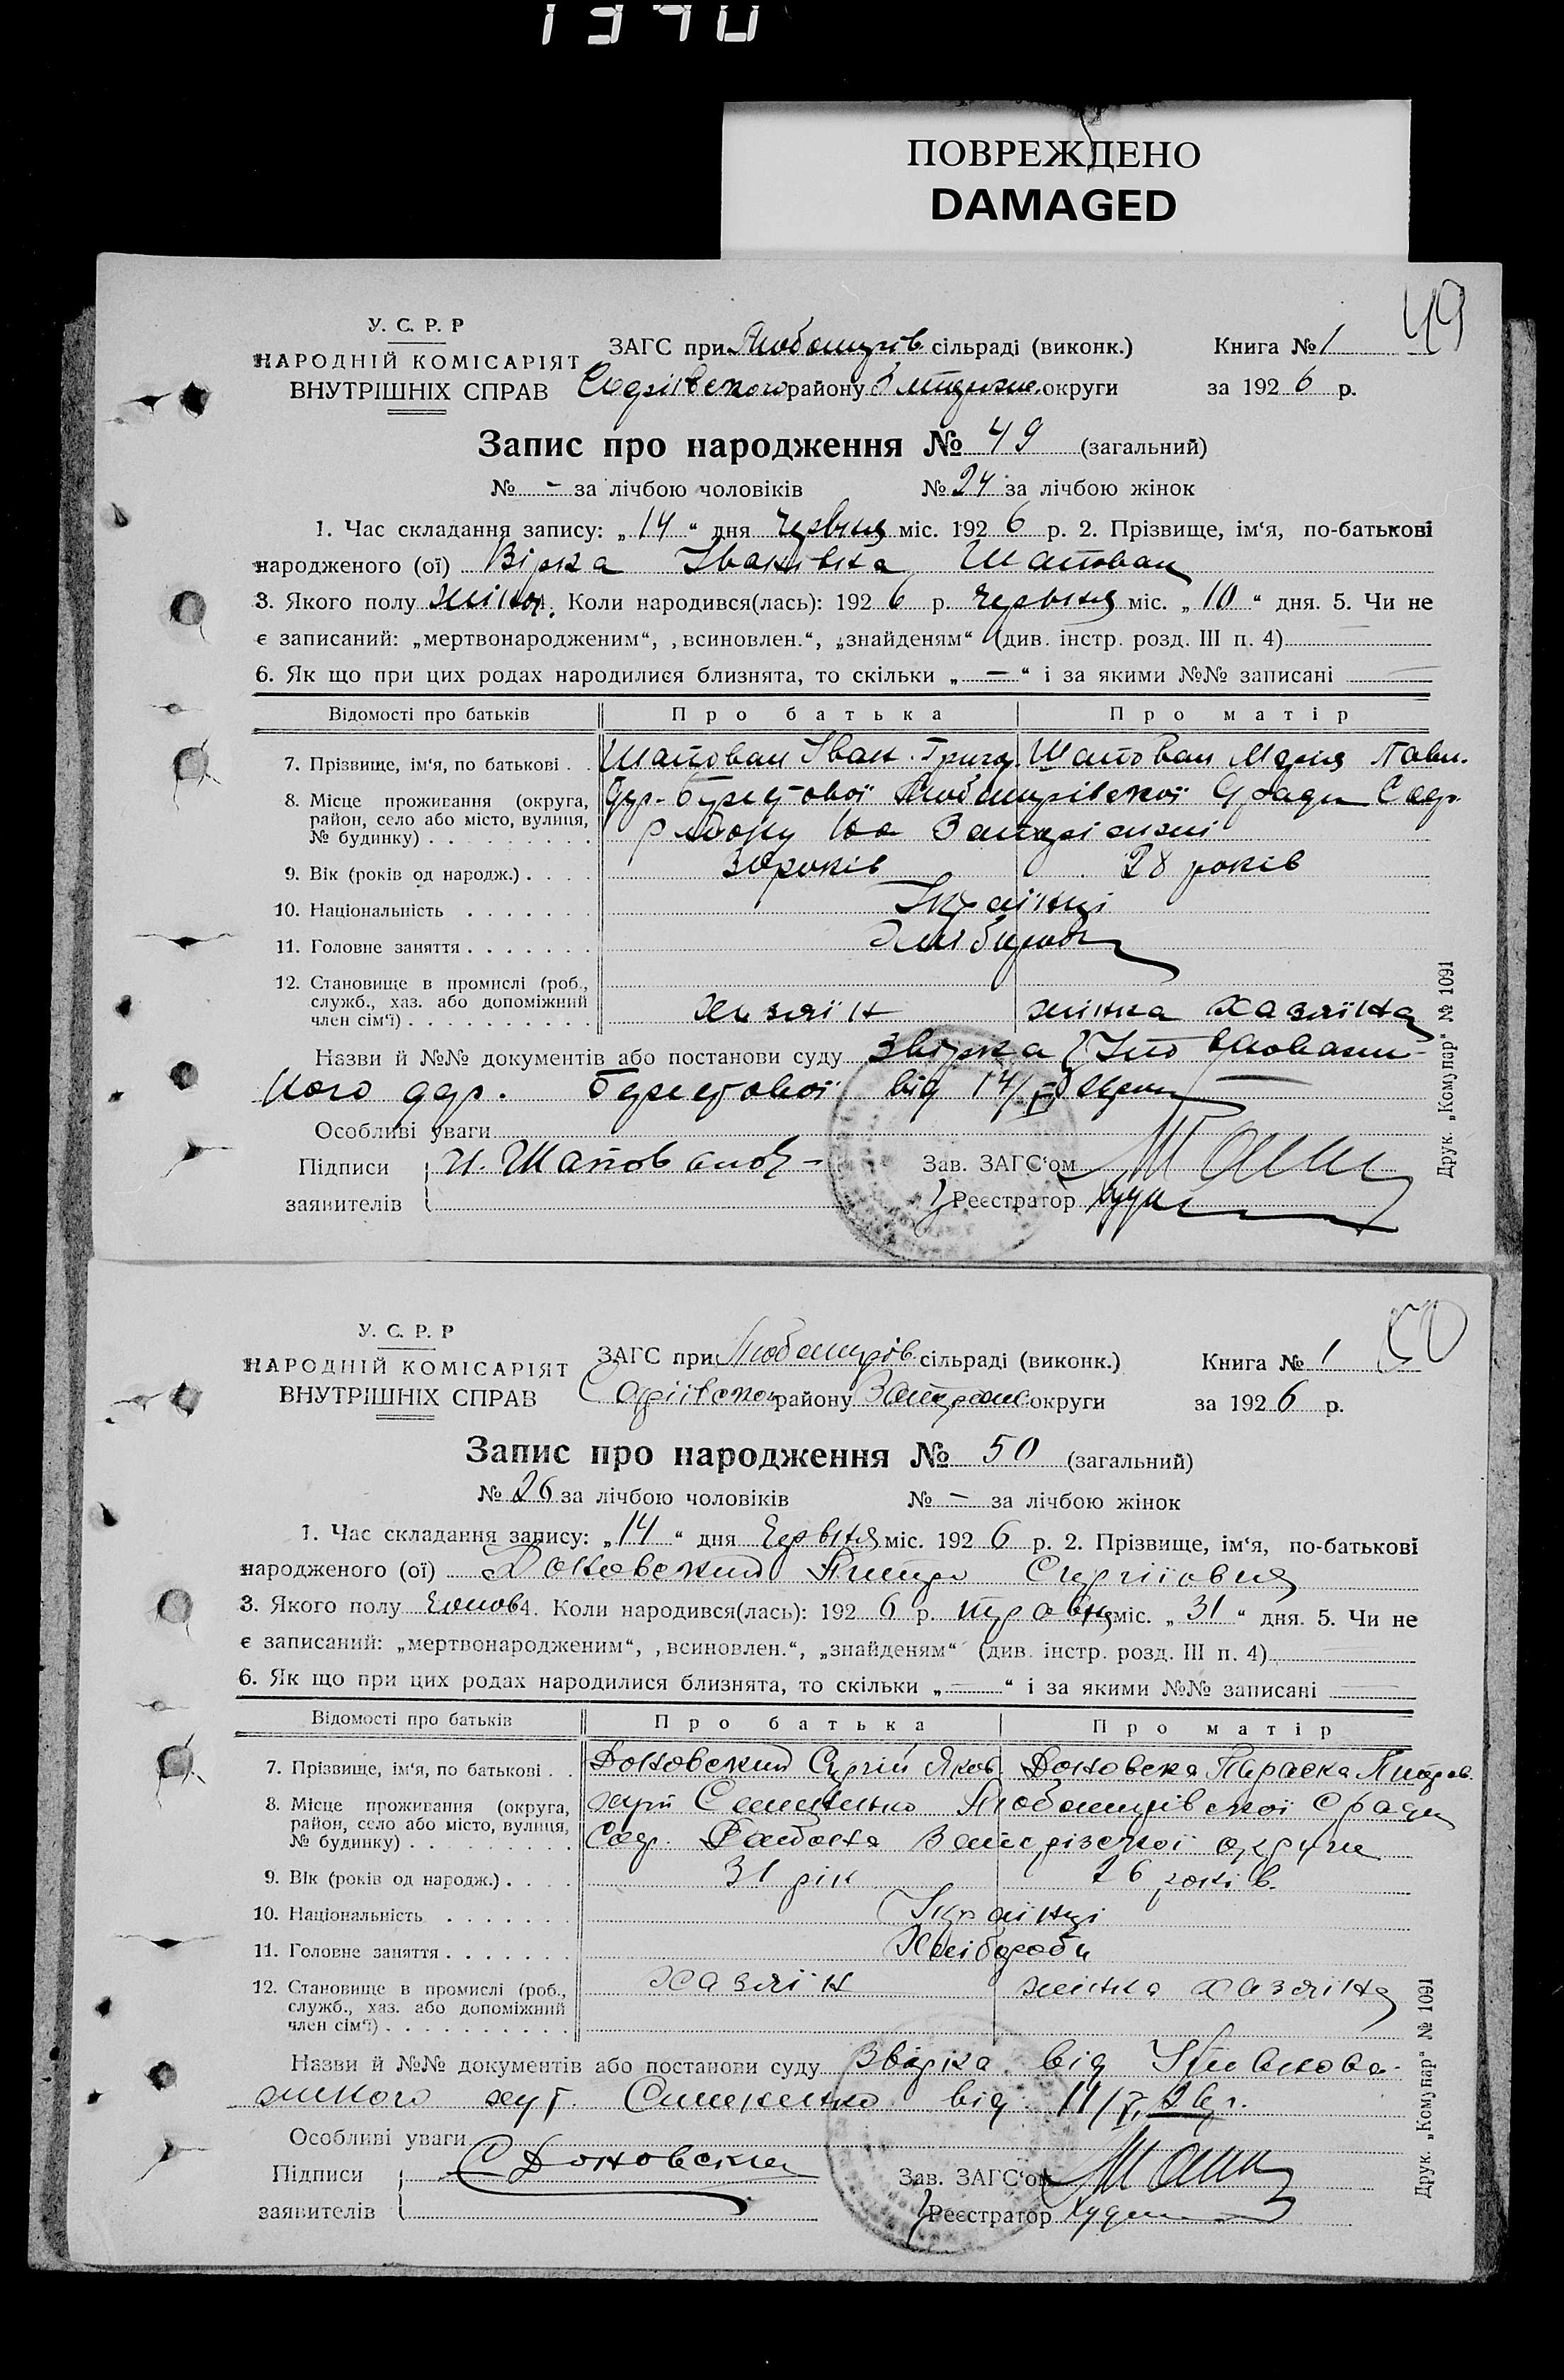 1390
ПОВРЕЖДЕНО
DAMAGED
49
У. С. Р. Р
НАРОДНІЙ КОМІСАРІЯТ
ВНУТРІШНІХ СПРАВ
ЗАГС при Любомирів сільраді (виконк.)
району округи
Книга № 1
за 1926 р.
Запис про народження № 49 (загальний)
№ - за лічбою чоловіків № 24 за лічбою жінок
1. Час складання запису: „14“ дня червня міс. 1926 р. 2. Прізвище, ім‘я, по-батькові
народженого (ої) Вірка Іванівна Шаповал
3. Якого полу жіноч. Коли народився(лась): 1926 р. червня міс. „10“ дня. 5. Чи не
є записаний: „мертвонародженим“, „всиновлен.“, „знайденям“ (див. інстр. розд. III п. 4)
6. Як що при цих родах народилися близнята, то скільки „—“ і за якими №№ записані —
Відомості про батьків Про батька Про матір
7. Прізвище, ім‘я, по батькові . . Шаповал Іван Григ. Шаповал Мария Павл.
8. Місце проживання (округа,
район, село або місто, вулиця,
№ будинку)
Любимирівської
9. Вік (років од народж.) . . . . 30 років 28 років
10. Національність . . . . . . . Українці
11. Головне заняття . . . . . . . Хлібороби
12. Становище в промислі (роб.,
служб., хаз. або допоміжний
член сім‘ї) . . . . . . . . . . хазяїн жінка хазяїна
Назви й №№ документів або постанови суду Звірка
ного від 14/
Особливі уваги
Підписи И. Шаповалов
заявителів
Зав. ЗАГС‘ом
Реєстратор
Друк. „Комунар“ № 1091
50
У. С. Р. Р
НАРОДНІЙ КОМІСАРІЯТ
ВНУТРІШНІХ СПРАВ
ЗАГС при Любомирів. сільраді (виконк.)
району округи
Книга № 1
за 1926 р.
Запис про народження № 50 (загальний)
№ 26 за лічбою чоловіків № - за лічбою жінок
1. Час складання запису: „14“ дня червня міс. 1926 р. 2. Прізвище, ім‘я, по-батькові
народженого (ої) Доновский Питро
3. Якого полу 4. Коли народився(лась): 1926 р. травня міс. „31“ дня. 5. Чи не
є записаний: „мертвонародженим“, „всиновлен.“, „знайденям“ (див. інстр. розд. III п. 4)
6. Як що при цих родах народилися близнята, то скільки „—“ і за якими №№ записані —
Відомості про батьків Про батька Про матір
7. Прізвище, ім‘я, по батькові . . Доновский Сиргій Яков. Доновска Параска Питров.
8. Місце проживання (округа,
район, село або місто, вулиця,
№ будинку)
хут Любомирівской
округи
9. Вік (років од народж.) . . . . 31 рік 26 років.
10. Національність . . . . . . . Українці
11. Головне заняття . . . . . . . Хлібороби
12. Становище в промислі (роб.,
служб., хаз. або допоміжний
член сім‘ї) . . . . . . . . . . хазяїн жінка хазяїна
Назви й №№ документів або постанови суду Звірка від
хут. від 11/
Особливі уваги
Підписи С Доновский
заявителів
Зав. ЗАГС‘ом
Реєстратор
Друк. „Комунар“ № 1091